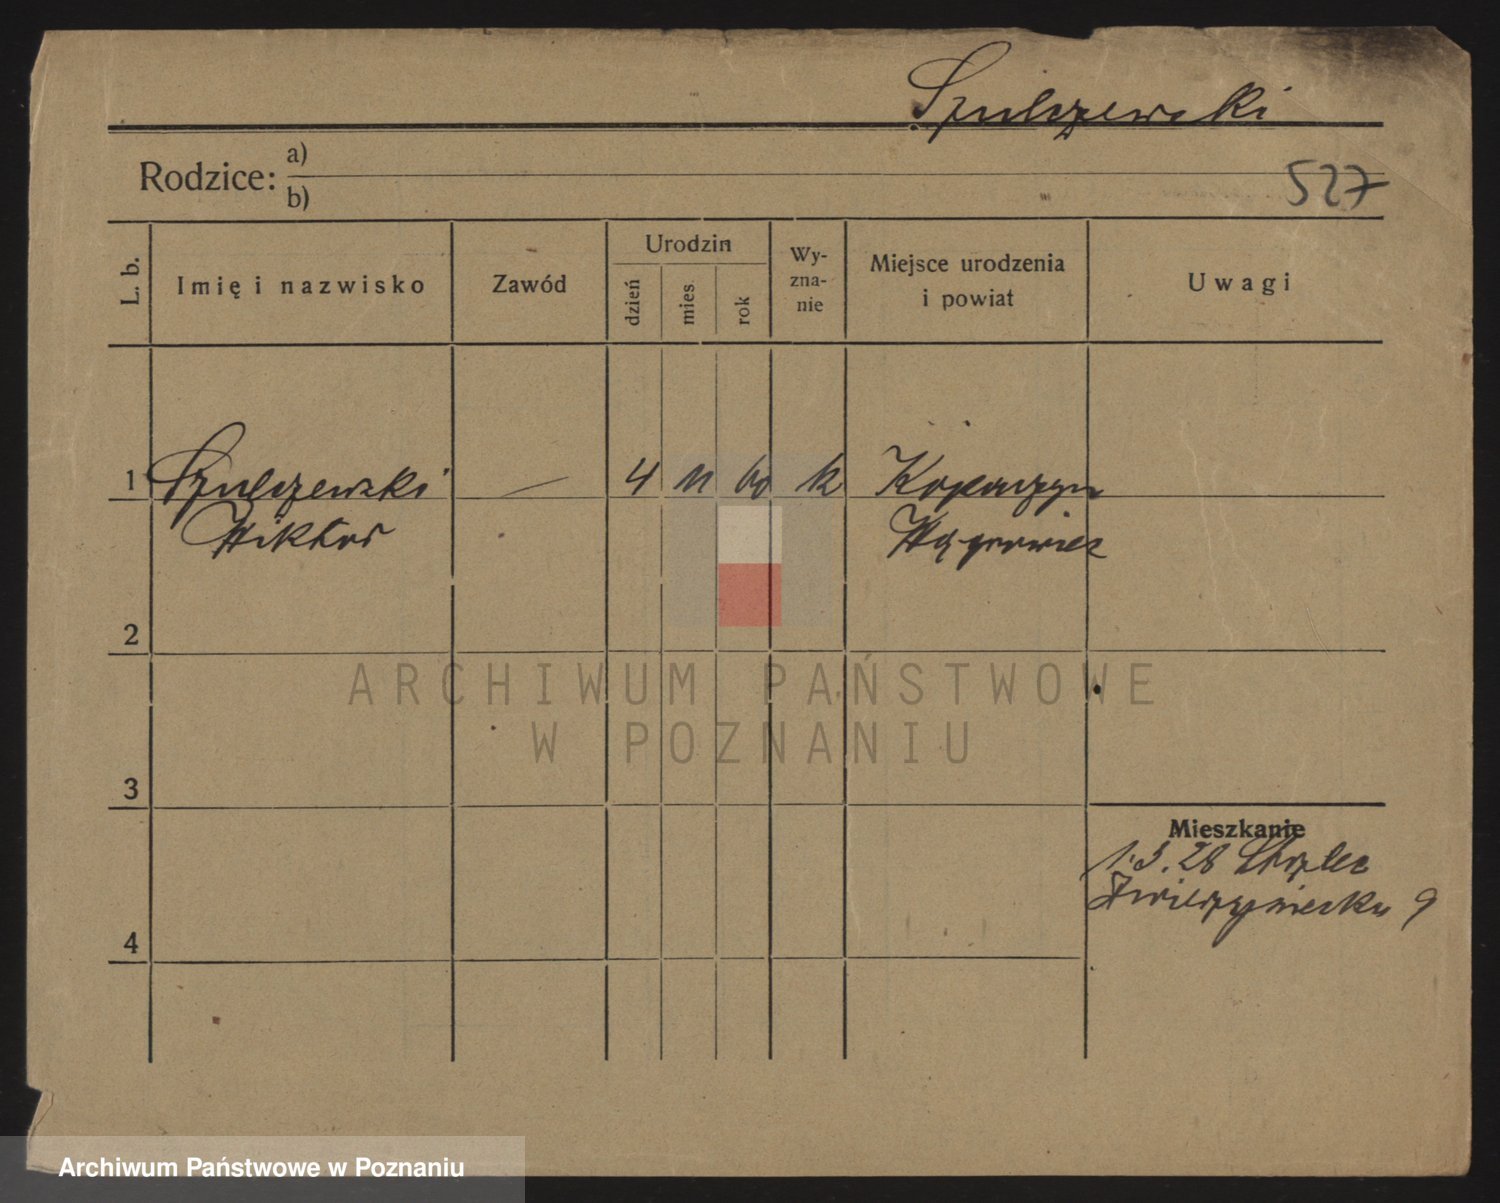 Szulczewski
Rodzice: a)
b)
527
L. b.
Imię i nazwisko
Zawód
Urodzin
dzień
mies
rok
Wy-
zna-
nie
Miejsce urodzenia
i powiat
Uwagi
1 Szulczewski — 4 11 60 k Kopaszyn
Wiktor Wągrowiec
2
ARCHIWUM PAŃSTWOWE
W POZNANIU
3
Mieszkanie
1.3.28
Zwierzyniecka 9
4
Archiwum Państwowe w Poznaniu